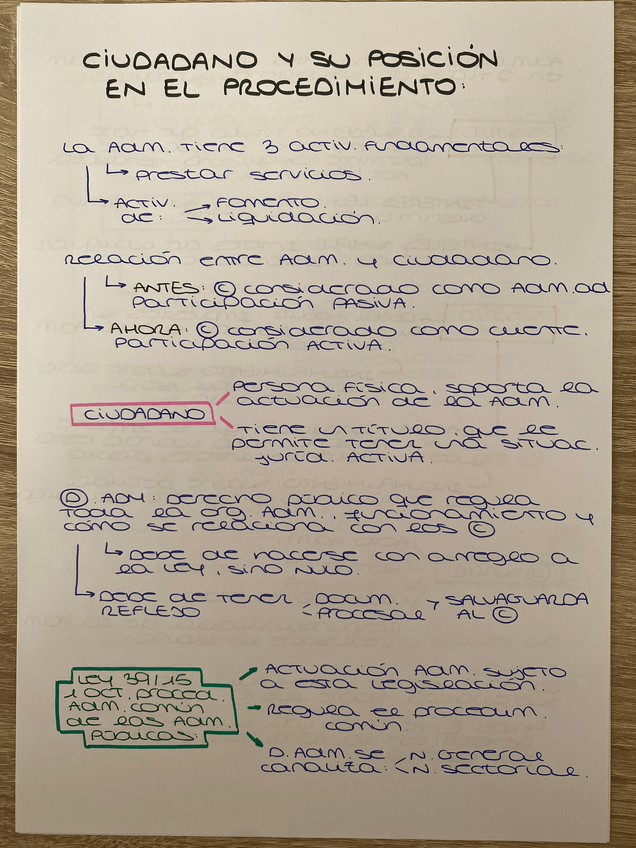 CIUDADANO Y SU POSICIÓN
EN EL PROCEDIMIENTO:
La Adm. tiene 3 activ. fundamentales:
↳ Prestar servicios.
↳ Activ. → Fomento.
de: → Liquidación.
Relación entre Adm. y ciudadano.
↳ ANTES: Ⓒ considerado como Adm.ad
Participación PASIVA.
↳ AHORA: Ⓒ considerado como cliente.
Participación ACTIVA.
CIUDADANO
Persona física, soporta la
actuación de la Adm.
Tiene un título que le
permite tener una situac.
juríd. ACTIVA.
Ⓓ. ADM: Derecho público que regula
toda la org. Adm., funcionamiento y
cómo se relaciona con los Ⓒ
↳ Debe de hacerse con arreglo a
la LEY, sino NULO.
↳ Debe de tener - Docum. → SALVAGUARDA
REFLEJO - Procesal AL Ⓒ
LEY 39/15
1 OCT. Proced.
Adm. común
de las Adm.
Públicas:
Actuación Adm. sujeto
a esta legislación.
Regula el procedim.
común.
D. Adm. se < N. General
canaliza: < N. Sectorial.